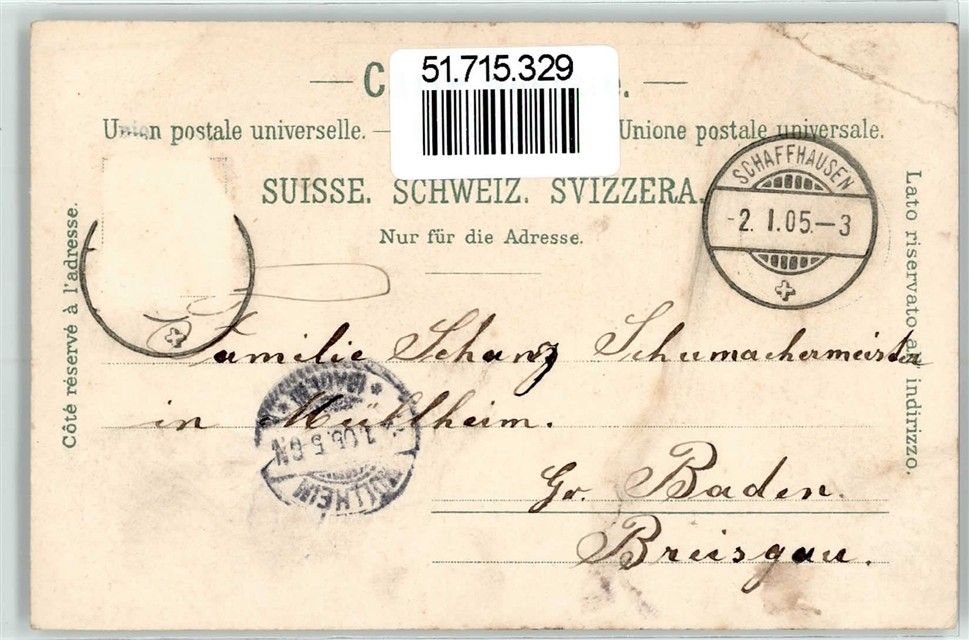 51.715.329
Union postale universelle. — Unione postale universale.
SUISSE. SCHWEIZ. SVIZZERA.
Nur für die Adresse.
Côté réservé à l'adresse.
Lato riservato all' indirizzo.
SCHAFFHAUSEN
-2. I.05.—3
Familie Schanz Schumachermeister
in Müllheim.
Gr. Baden.
Breisgau.
MÜLLHEIM
(BADEN)
1.05.5-6N